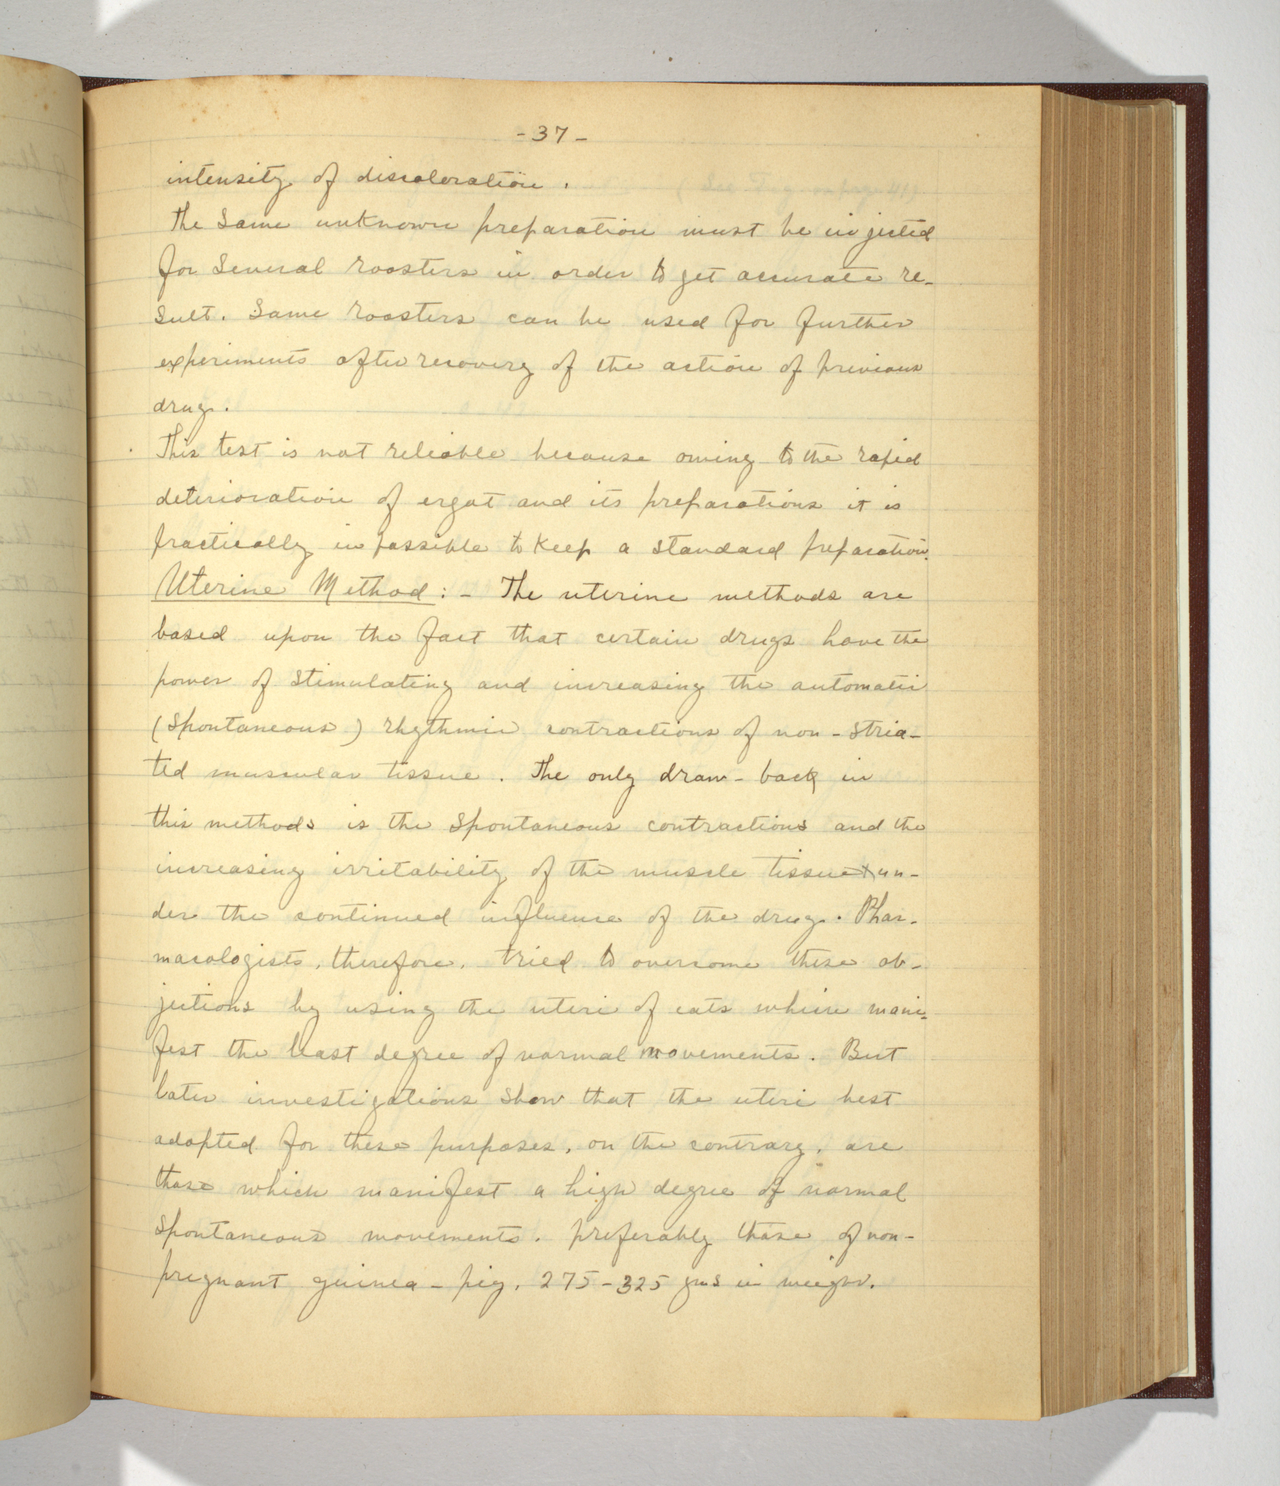 -37-
intensity of discoloration.
The Same unknown preparation must be injected
for Several roosters in order to get accurate re-
sult. Same roosters can be used for further
experiments after recovery of the action of previous
drug.
This test is not reliable because owing to the rapid
deterioration of ergot and its preparations it is
practically impossible to keep a standard preparation.
Uterine Method :- The uterine methods are
based upon the fact that certain drugs have the
power of stimulating and increasing the automatic
(Spontaneous) rhythmic contractions of non-stria-
ted muscular tissue. The only draw-back in
this methods is the spontaneous contractions and the
increasing irritability of the muscle tissue un-
der the continued influence of the drug. Phar-
macologists, therefore, tried to overcome these ob-
jections by using the uteri of cats which mani-
fest the least degree of normal movements. But
later investigations show that the uteri best
adapted for these purposes, on the contrary, are
those which manifest a high degree of normal
spontaneous movements. preferably those of non-
pregnant guinea-pig, 275-325 gms in weight.